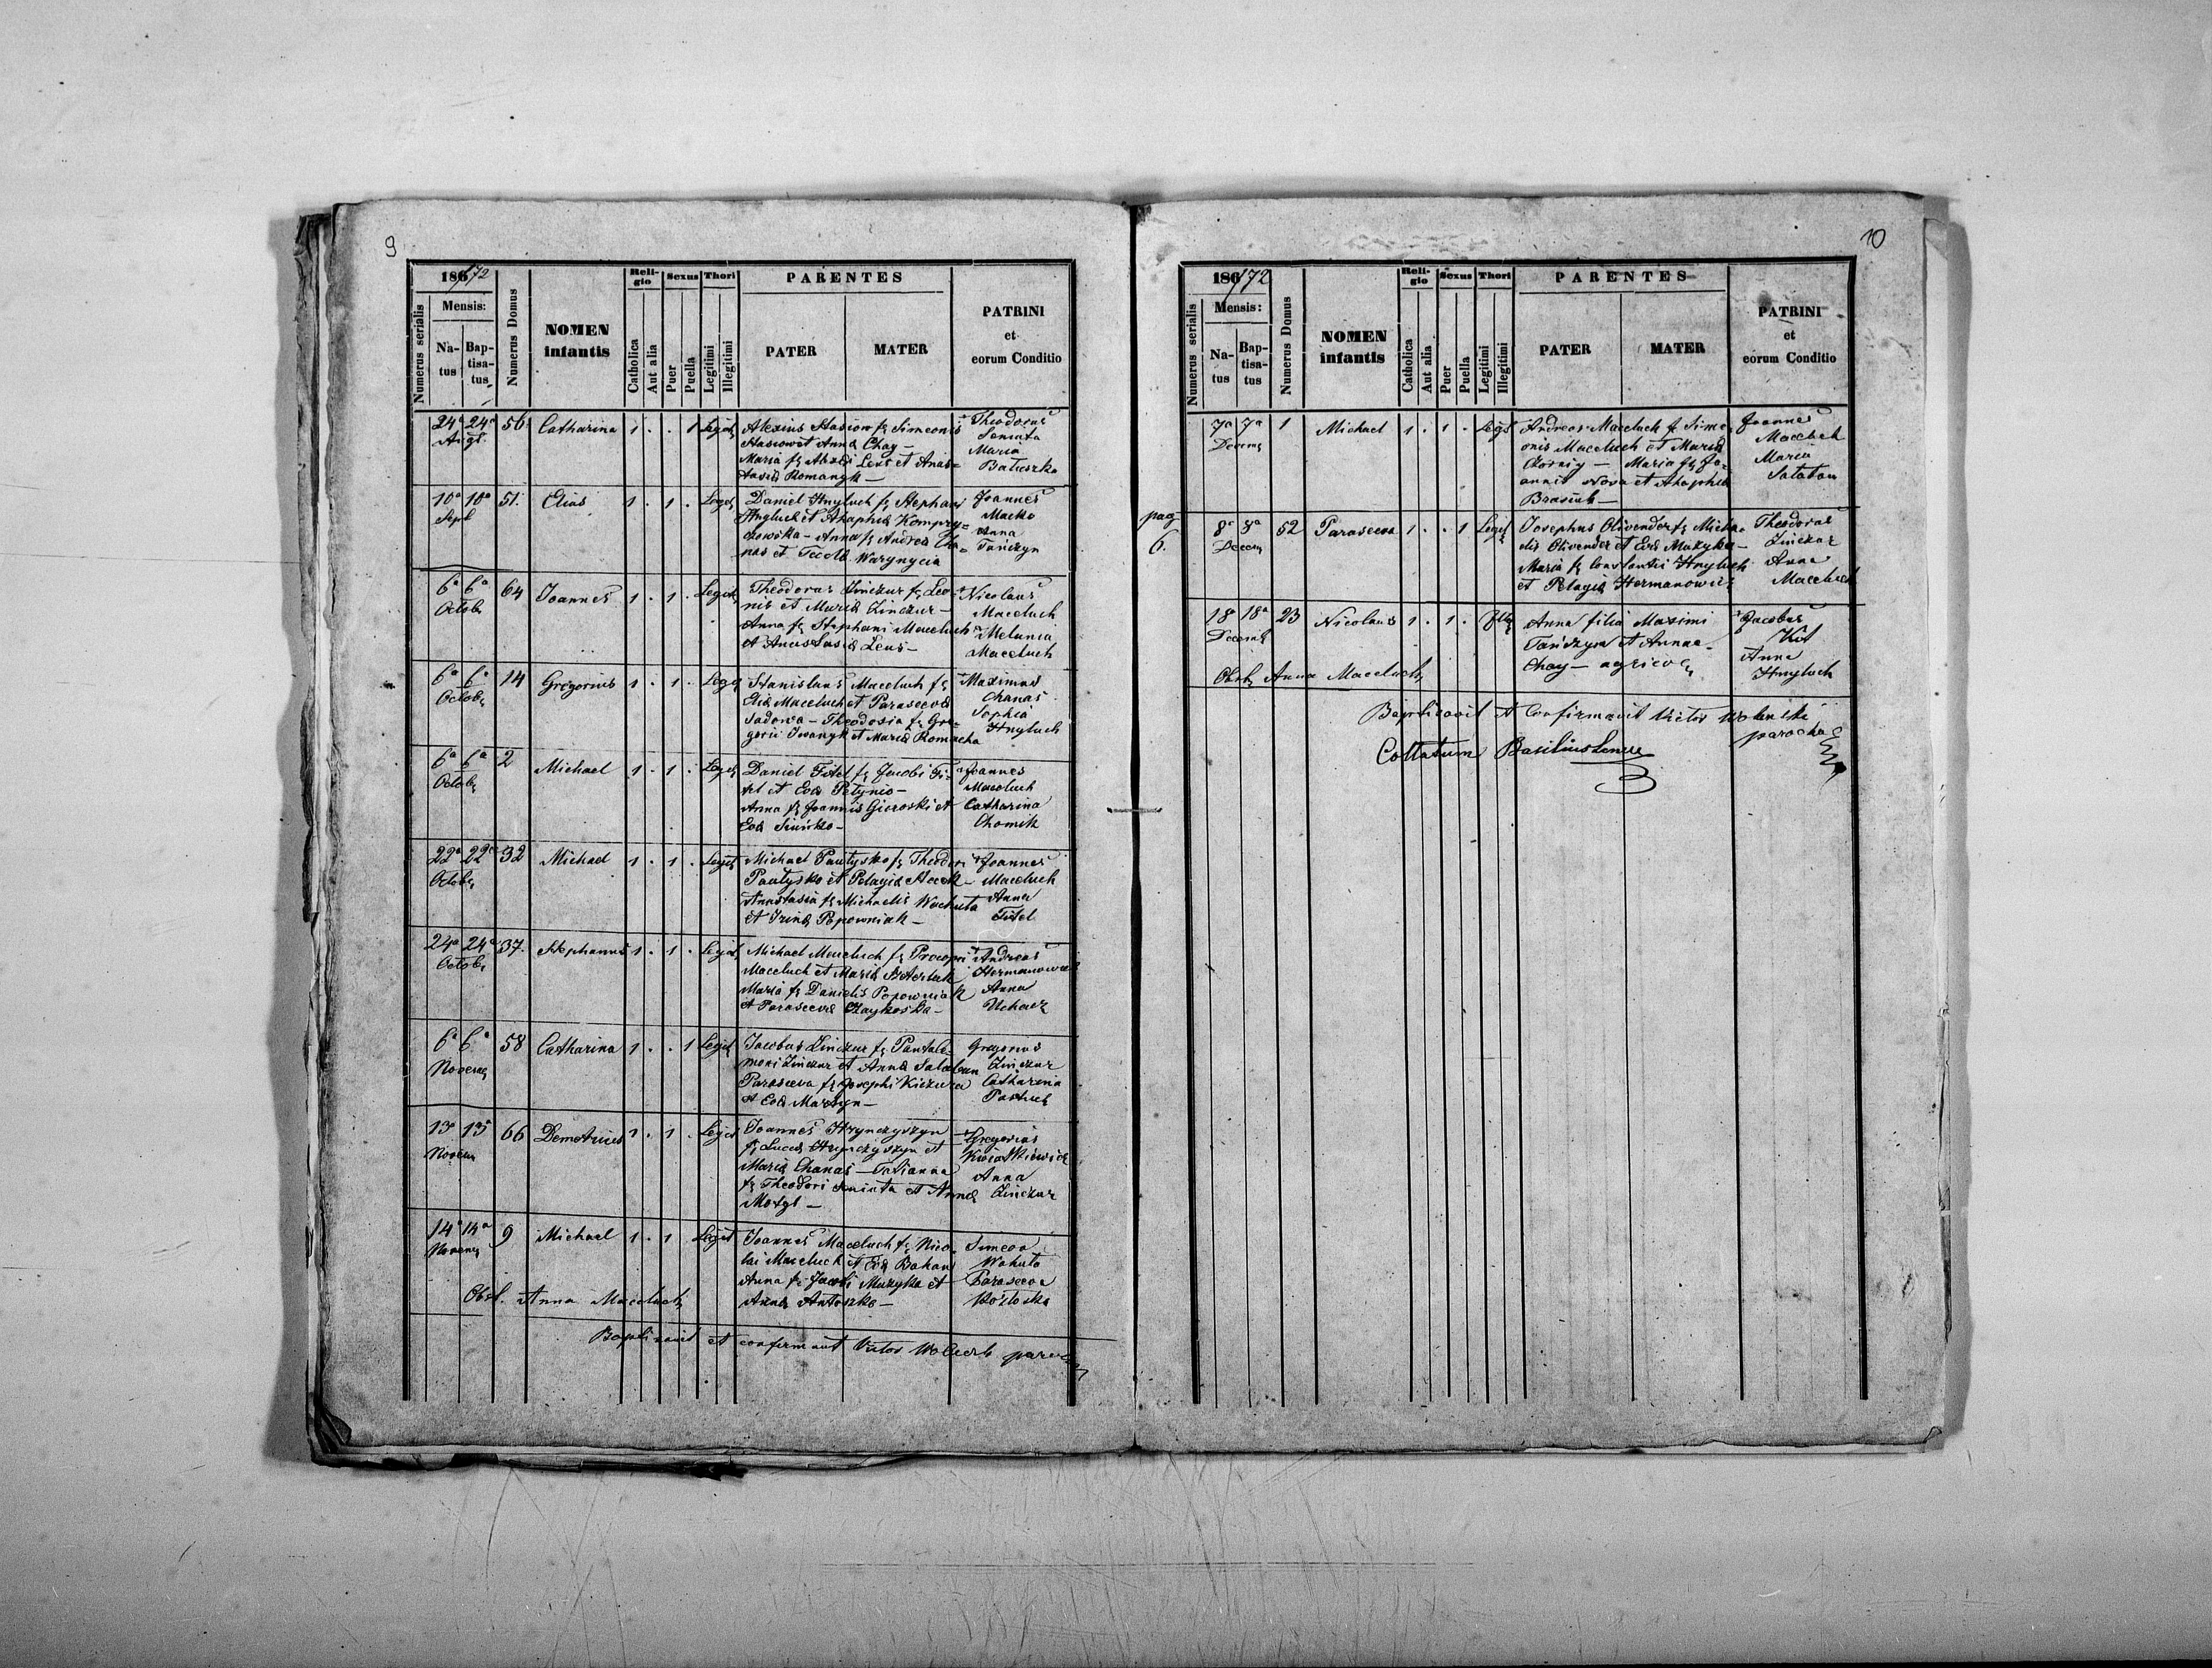 9
186 1872
Numerus serialis
Mensis:
Natus
Baptisatus
Numerus Domus
NOMEN
infantis
Religio
Catholica
Aut alia
Sexus
Puer
Puella
Thori
Legitimi
Illegitimi
PARENTES
PATER
MATER
PATRINI
et
eorum Conditio
24a 24a 56 Catharina 1 . . 1 Legit
Augt.
Alexius Stasiow f Simeonis
Stasiow et Anna Chay -
Maria f Alexii Leus et Anas=
tasia Romanyk -
Theodorus
Senuta
Maria
Batiuszka
10a 10a 51. Elias 1 . 1 . Legit
Sept
Daniel Hnyluch f Stephani
Hnyluch et Ahaphia
Anna f Andrea Cha=
nas et Tecla Warynycia
Joannes
Macko
Anna
Tańczyn
6a 6a 64 Joannes 1 . 1 . Legit
Octob
Theodorus Zinczur f Leo-
nis et Maria Zinczur -
Anna f Stephani Maceluch
et Anastasia Leus -
Nicolaus
Maceluch
Melania
Maceluch
6a 6a 14 Gregorius 1 . 1 . Legit
Octob
Stanislaus Maceluch f
Elia Maceluch et Parasceva
Sadowa - Theodosia f Gre=
gorii Iwanyk et Maria Romacha
Maximus
Chanas
Sophia
Hnyluch
6a 6a 2 Michael 1 . 1 . Legit
Octob
Daniel Fitel f Jacobi Fi-
tel et Eva Petynio -
Anna f Joannis Gieroski et
Eva
Joannes
Maceluch
Catharina
Chomik
22a 22a 32 Michael 1 . 1 . Legit
Octob
Michael Pautysko f Theodori
Pautysko et Pelagia
Anastasia f Michaelis Wachuta
et Irina Popowniak -
Joannes
Maceluch
Anna
Fitel
24a 24a 37. Stephanus 1 . 1 . Legit
Octob
Michael Maceluch f Procopii
Maceluch et Maria
Maria f Danielis Popowniak
et Parasceva Czaykoska -
Andreas
Hermanowicz
Anna
6a 6a 58 Catharina 1 . . 1 Legit
Novem
Jacobus Zinczur f Pantale-
moni Zinczur et Anna Salaban
Parasceva f Josephi Kiczura
et Eva Marcyn -
Gregorius
Zinczur
Catharina
Pastuch
13a 13a 66 Demetrius 1 . 1 . Legit
Novem
Joannes Hrynczyszyn
f Luca Hrynczyszyn et
Maria Chanas - Tatianna
f Theodori Senuta et Anna
Motyl -
Gregorius
Kwiatkiewicz
Anna
Zinczur
14a 14a 9 Michael 1 . 1 Legit
Novem
Joannes Maceluch f Nico-
lai Maceluch et Eva Bakan
Anna f Jacobi Muzyka et
Anna Antoszko -
Simeon
Wahuta
Parasceva
Obst. Anna Maceluch
Baptisavit et confirmavit Victor paroch
10
186 1872
Numerus serialis
Mensis:
Natus
Baptisatus
Numerus Domus
NOMEN
infantis
Religio
Catholica
Aut alia
Sexus
Puer
Puella
Thori
Legitimi
Illegitimi
PARENTES
PATER
MATER
PATRINI
et
eorum Conditio
7a 7a 1 Michael 1 . 1 . Legit
Decem
Andreas Maceluch f Sime-
onis Maceluch et Maria
Czorniy - Maria f Jo-
annis Nowa et Ahaphia
Brasiuk -
Joannes
Maceluch
Maria
Salaban
pag
6.
8a 8a 52 Parasceva 1 . . 1 Legit
Decem
Josephus Olivender f Micha-
elis Olivender et Eva Muzyka -
Maria f Constantii Hnyluch
et Pelagia Hermanowicz
Theodorus
Zinczur
Anna
Maceluch
18a 18a 23 Nicolaus 1 . 1 . Illeg
Decemb
Anna filia Maximi
Tańczyn et Annae
Chay - agricol
Jacobus
Kot
Anna
Hnyluch
Obst. Anna Maceluch
Baptisavit et Confirmavit Victor
parochus
Collatum Basilius